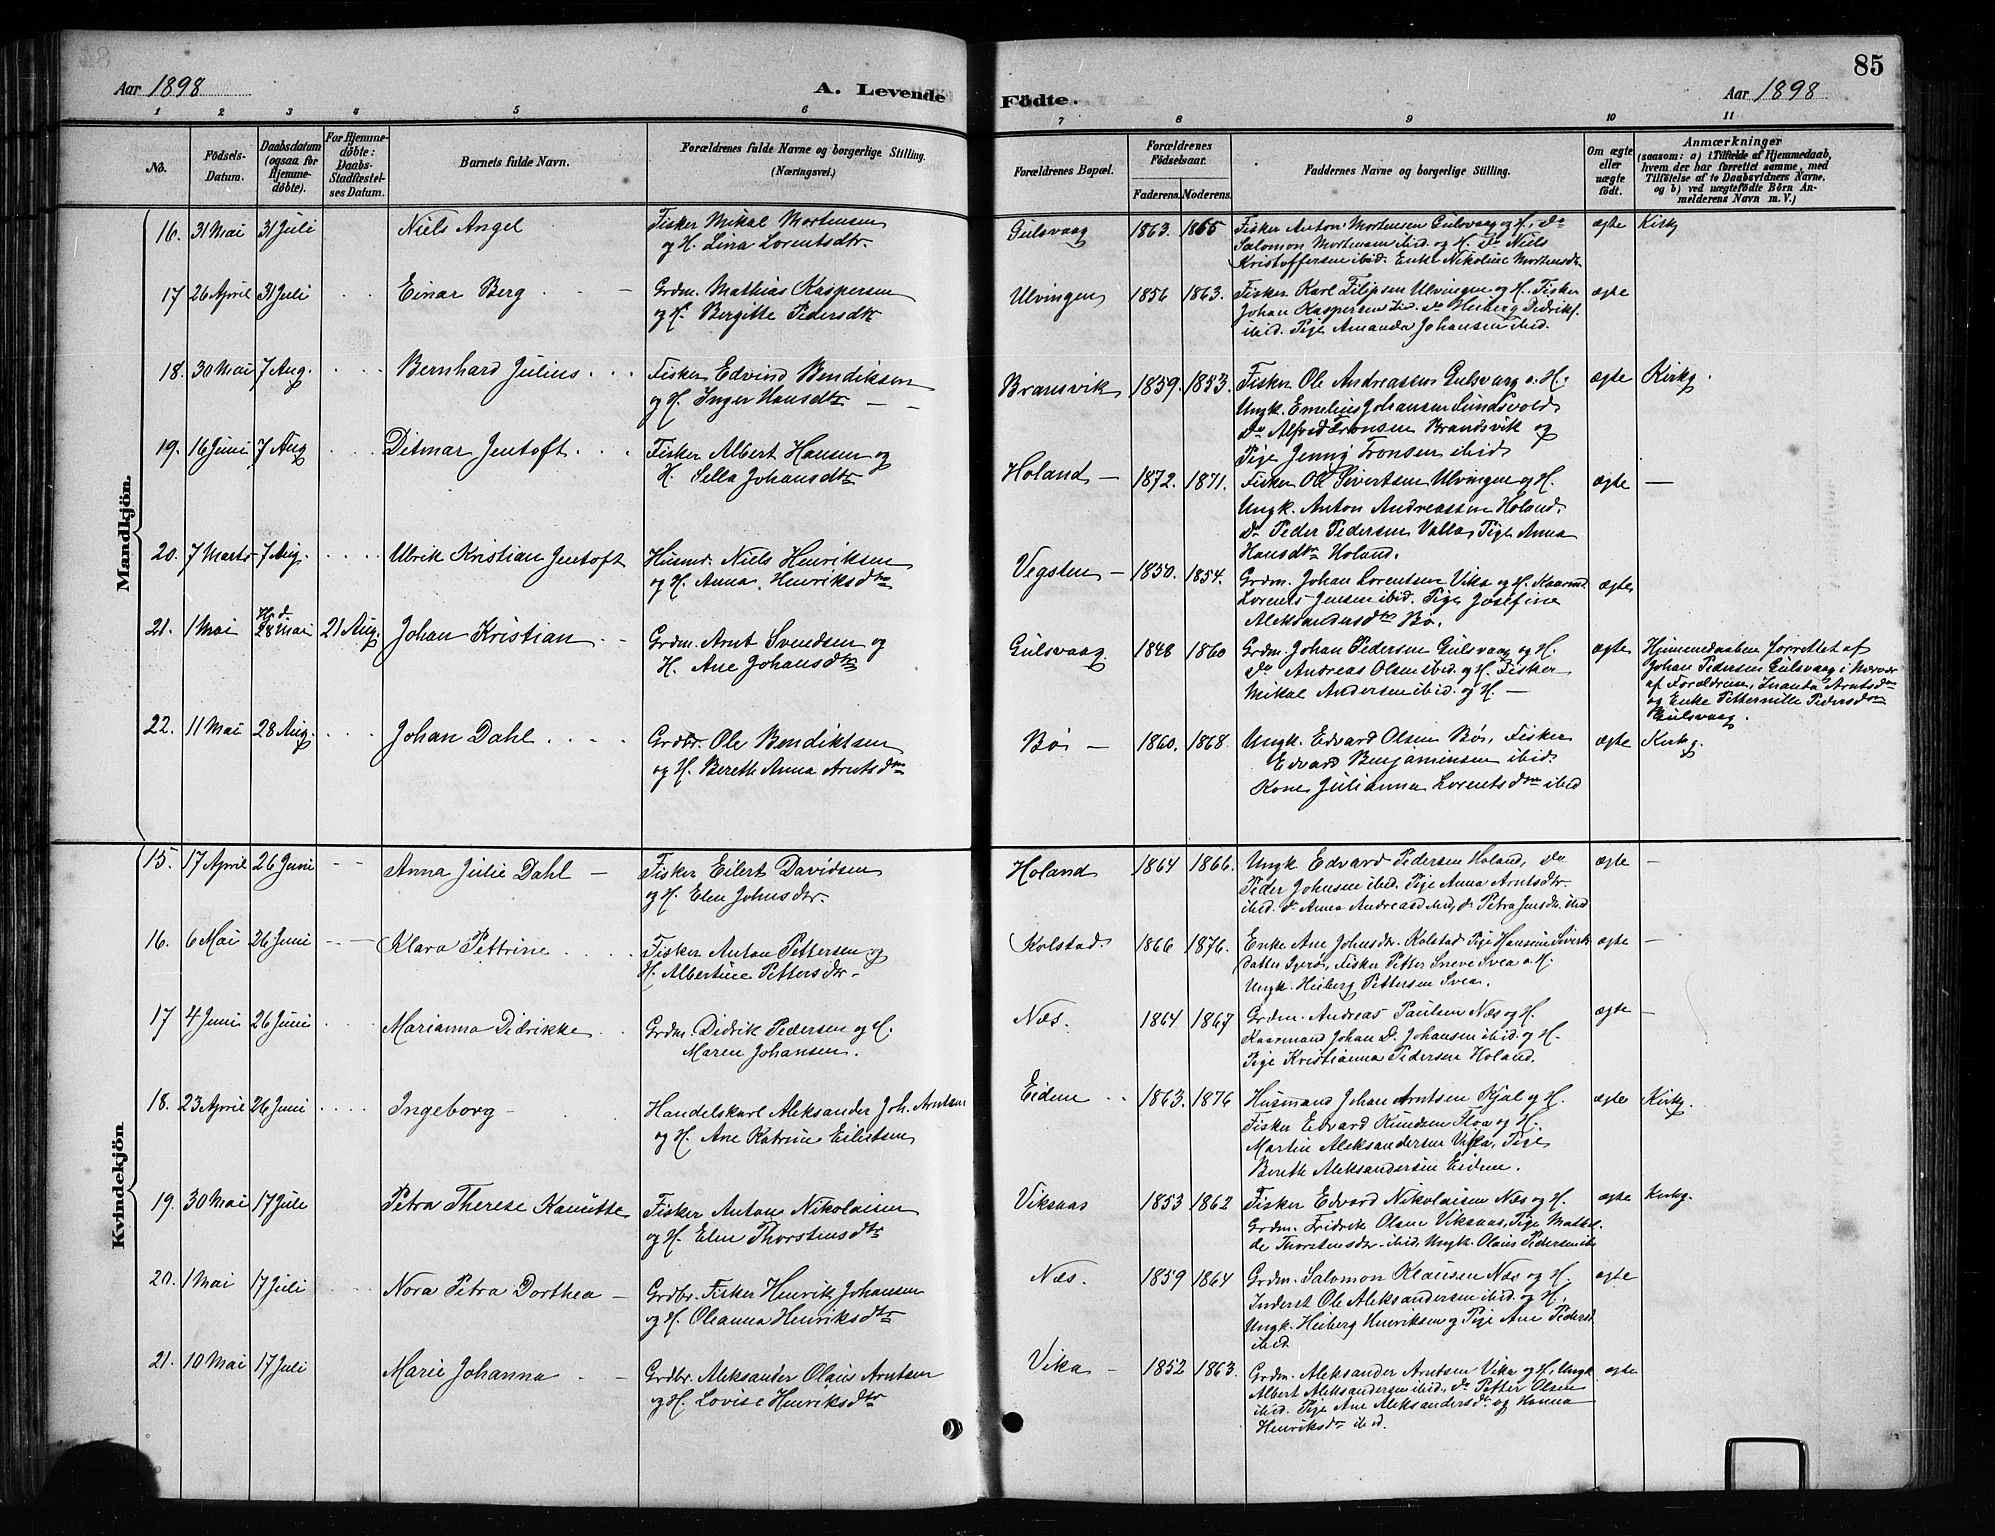 85
Aar 1898
A. Levende
Födte.
Aar 1898
1 2 3 4 5 6 7 8 9 10 11
No.
Födsels-
Datum.
Daabsdatum
(ogsaa for
Hjemme-
döbte).
For Hjemme-
döbte:
Daabs-
Stadfæstel-
ses Datum.
Barnets fulde Navn.
Forældrenes fulde Navne og borgerlige Stilling.
(Næringsvei.)
Forældrenes Bopæl.
Forældrenes
Födselsaar.
Faderens. Moderens.
Faddernes Navne og borgerlige Stilling.
Om ægte
eller
uægte
födt.
Anmærkninger
(saasom: a) i Tilfælde af Hjemmedaab,
hvem der har forrettet samme, med
Tilföielse af to Daabsvidners Navne,
og b) ved uægtefödte Börn An-
melderens Navn m. V.)
Mandkjön.
16. 31 Mai 31 Juli Niels Angel
Fisker Mikal Mortensen
og H. Lina Lorentsdtr.
Gulsvaag 1863. 1865
Fisker Anton Mortensen Gulsvaag og H., Do
Salomon Mortensen ibid. og H. Do Niels
Kristoffersen ibid. Enke Nikoline Mortensdr.
ægte Kirkg
17 26 April 31 Juli Einar Berg
Grdm. Mathias Kaspersen
og H. Bergitte Pedersdtr
Ulvingen 1856 1863.
Fisker Karl Filipsen Ulvingen og H. Fisker
Johan Kaspersen ibid. Do Heiberg Didriks.
ibid. Pige Amanda Johansen ibid.
ægte
18. 30 Mai 7 Aug. Bernhard Julius
Fisker Edvind Bendiksen
og H. Inger Hansdtr
Bransvik 1859. 1853.
Fisker Ole Andreassen Gulsvaag o. H.
Ungk. Emelius Johansen Sundsvold
Do Alfred Tronsen Brandsvik og
Pige Jenny Tronsen ibid
ægte Kirkg.
19. 16 Juni 7 Aug Ditmar Jentoft
Fisker Albert Hansen og
H. Sella Johansdtr
Holand 1872. 1871.
Fisker Ole Sivertsen Ulvingen og H.
Ungk. Anton Andreassen Holand.
Do Peder Pedersen Valla, Pige Anna
Hansdtr Holand.
ægte —
20. 7 Marts 7 Aug. Ulrik Kristian Jentoft
Husmd. Niels Henriksen
og H. Anna Henriksdtr
Vegsten 1850. 1854.
Grdm. Johan Lorentsen Vika og H. Kaarmd.
Lorents Jensen ibid. Pige Josefine
Aleksandersdtr Bø.
ægte
21. 1 Mai H.d. 28 Mai 21 Aug. Johan Kristian
Grdm. Arnt Svendsen og
H. Ane Johansdtr
Gulsvaag 1848 1860
Grdm. Johan Pedersen Gulsvaag og H.
Do Andreas Olsen ibid. og H. Fisker
Mikal Andersen ibid. og H. —
ægte
Hjemmedaaben forrettet af
Johan Pedersen Gulsvaag i Nærvær
af Forældrene, Arntsdtr
og Enke Pethernille Pedersdtr
Gulsvaag.
22. 11 Mai 28 Aug. Johan Dahl
Grdbr. Ole Bendiktsen
og H. Bereth Anna Arntsdtr
Bø — 1860. 1868.
Ungk. Edvard Olsen Bø, Fisker
Edvard Benjaminsen ibid.
Kone Julianna Lorentsdtr ibid
ægte Kirkg.
Kvindekjön
15. 17 April 26 Juni Anna Julie Dahl —
Fisker Eilert Davidsen
og H. Elen Johnsdtr.
Holand 1864 1866.
Ungk Edvard Pedersen Holand, Do
Peder Johnsen ibid. Pige Anna Arntsdtr.
ibid. Do Anna Andreasd. ibid, do Petra Jensdr. ibid
ægte —
16. 6 Mai 26 Juni Klara Pettrine
Fisker Anton Pettersen og
H. Albertine Pettersdtr.
Kolstad. 1866 1876.
Enke Ane Johnsdr. Kolstad Pige Hansine Siverts
datter Igerø, Fisker Petter Sneve Svea o. H.
Ungk. Heiberg Pettersen Svea.
ægte —
17 4 Juni 26 Juni Marianna Didrikke
Grdm. Didrik Pedersen og H.
Maren Johansen.
Næs. 1864 1867
Grdm. Andreas Paulsen Næs og H.
Kaarmand Johan D. Johansen ibid. og H.
Pige Kristianna Pedersen Holand.
ægte —
18. 23 April 26 Juni Ingeborg
Handelskarl Aleksander Joh. Arntsen
og H. Ane Katrine Eilertsen
Eidem 1863. 1876
Husmand Johan Arntsen Kjal og H.
Fisker Edvard Knudsen Floa og H.
Martin Aleksandersen Vika, Pige
Bereth Aleksandersen Eidem.
ægte Kirkg.
19. 30 Mai 17 Juli Petra Therese Kanutte
Fisker Anton Nikolaisen
og H. Elen Thorstensdtr
Viksaas 1853 1862
Fisker Edvard Nikolaisen Næs og H.
Grdm. Fridrik Olsen Viksaas, Pige Mathil-
de Thorstensdr. ibid. Ungk. Olaus Pedersen ibi
ægte Kirkg.
20. 1 Mai 17 Juli Nora Petra Dorthea —
Grdbr. Fisker Henrik Johansen
og H. Oleanna Henriksdtr
Næs. 1859 1864
Grdm. Salomon Klausen Næs og H.
Inderst Ole Aleksandersen ibid. og H.,
Ungk. Heiberg Henriksen og Pige Ane Pedersd
ibid
ægte
21. 10 Mai 17 Juli Marie Johanna
Grdbr. Aleksander Olaus Arntsen
og H. Lovise Henriksdtr
Vika — 1852 1863.
Grdm. Aleksander Arntsen Vika og H. Ungk
Albert Aleksandersen ibid., do Petter Olsen
ibid. Pige Ane Aleksandersdtr og Hanna
Henriksdtr ibid.
ægte